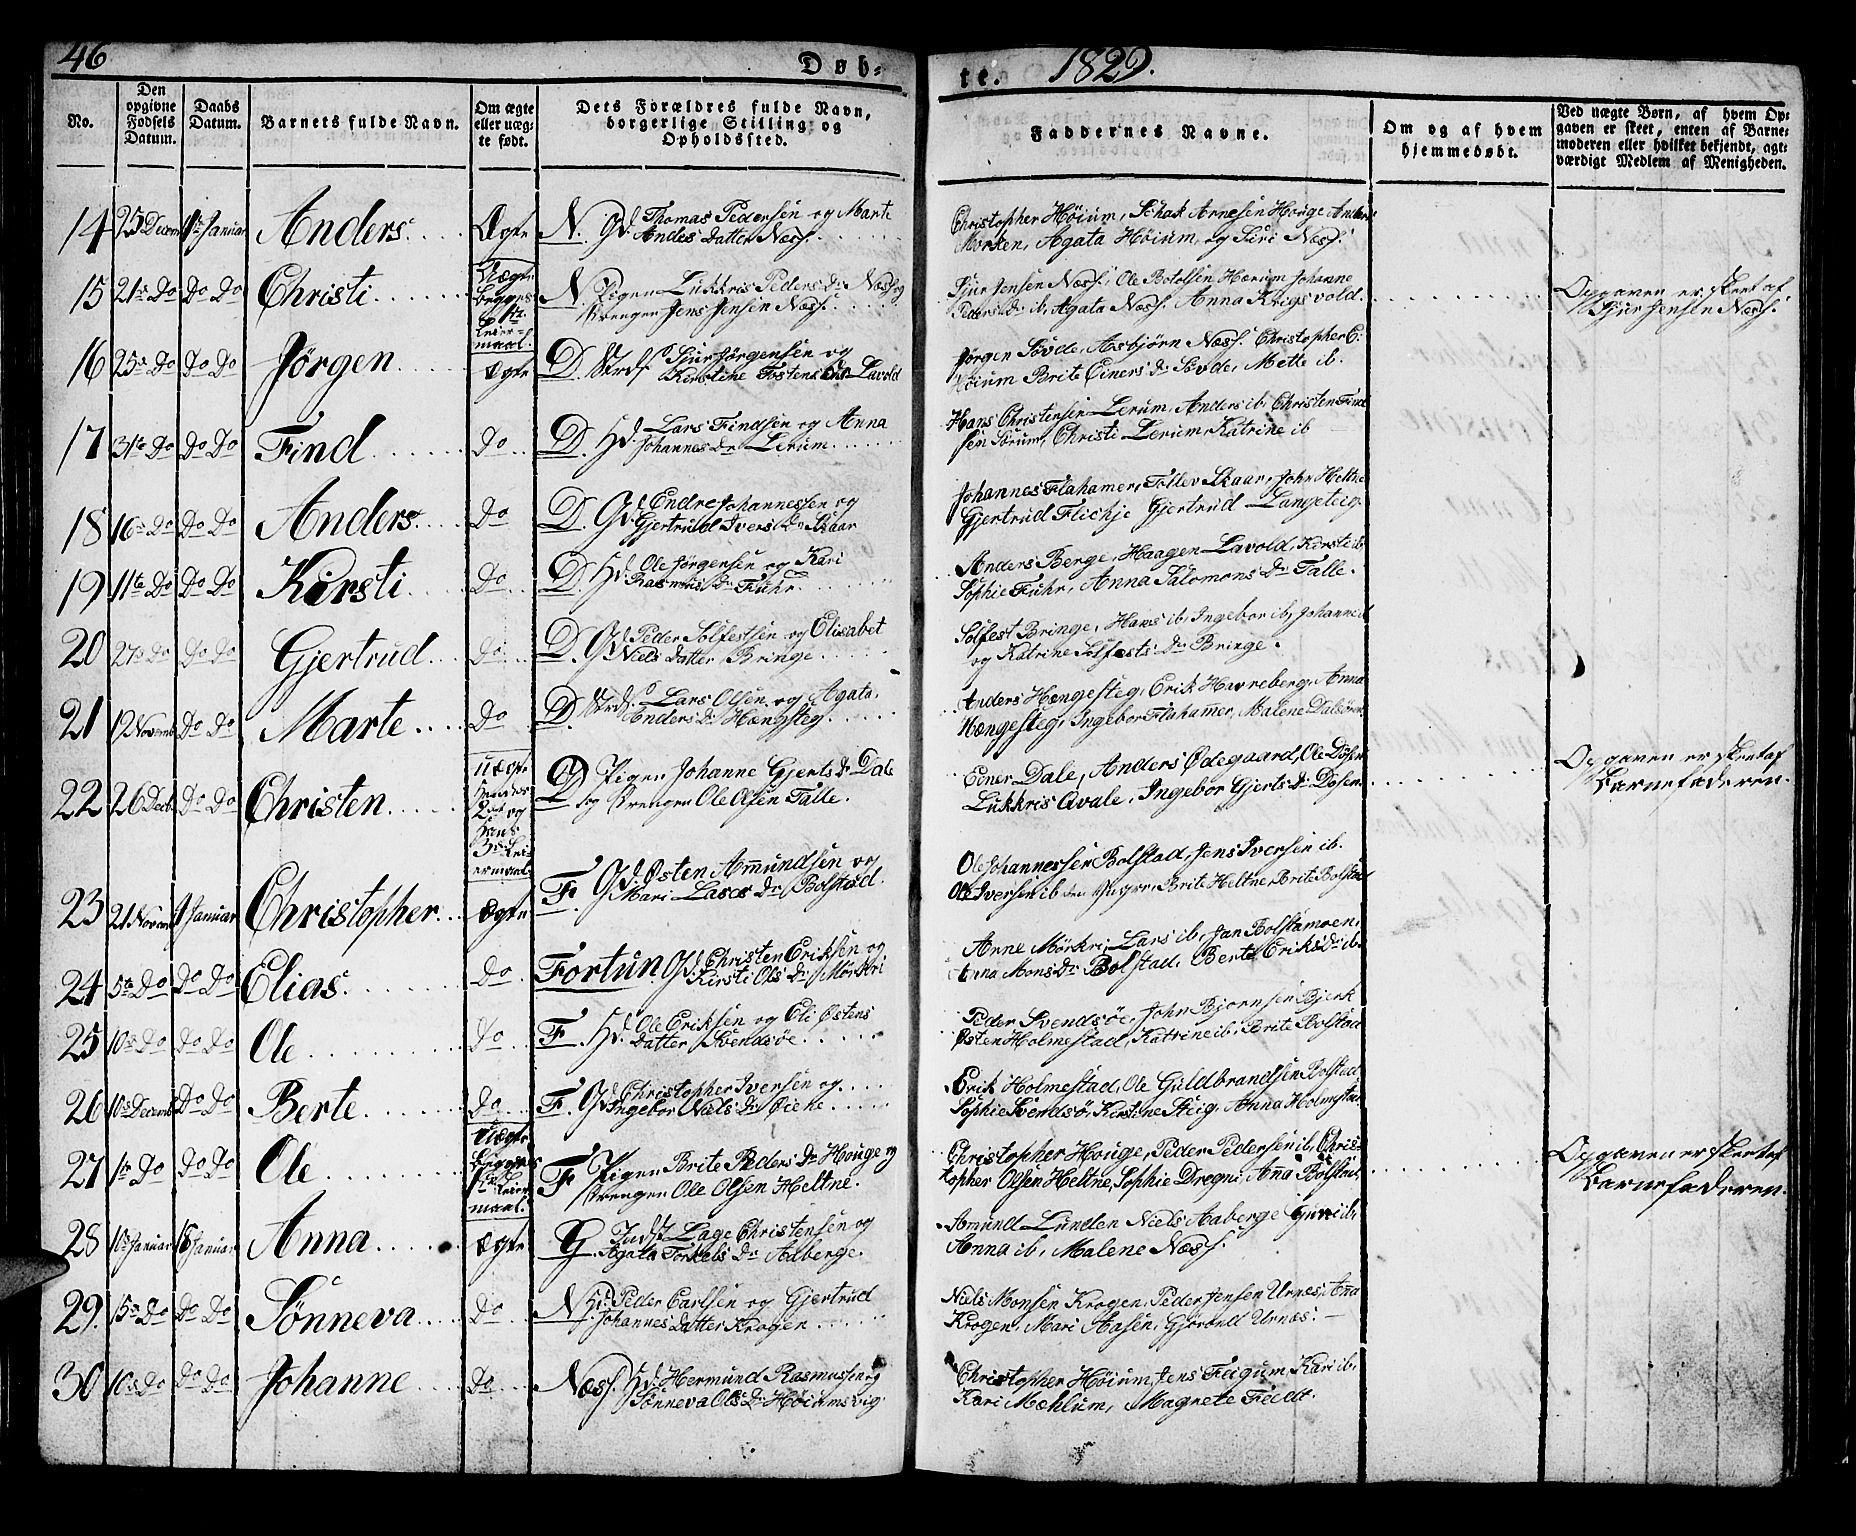 46
Døb-
te. 1829.
No.
Den opgivne Fødsels Datum.
Daabs Datum.
Barnets fulde Navn.
Om ægte eller uægte født.
Dets Forældres fulde Navn, borgerlige Stilling og Opholdssted.
Faddernes Navne.
Om og af hvem hjemmedøbt.
Ved uægte Børn, af hvem Opgaven er skeet, enten af Barnemoderen eller hvilket bekjendt, agtværdigt Medlem af Menigheden.
14 25 Decem 1ste Januar Anders Ægte N. Gd. Thomas Pedersen og Marte
Andes Datter Næss.
Christopher Høium, Schak Arnesen Houge Anders
Morken, Agata Høium, og Siri Næss.
15 21s Do Do Do Christi Uægte Begges 1te Leiermaal. N. Pigen Lukkris Peders Dr Næss og
Drengen Jens Jensen Næss.
Sjur Jensen Næss. Ole Botolfsen Hærum Johanne
Peders Dr ib, Agata Næss. Anna Krigsvold.
Opgaven er skeet af
Sjur Jensen Næss.
16 25s Do Do Do Jørgen Ægte D. Sjur Jørgensen og
Kirstine Tostens Dr Lavold
Jørgen Søvde, Asbjørn Næss. Christopher E:
Høium Brite Einers Dr Søvde, Mette ib.
17 31te Do Do Do Find Do D. Hd. Lars Findsen og Anna
Johannes Dr Lerum
Hans Christensen Lerum, Anders ib, Christen Find
sen Sørum, Christi Lerum, Katrine ib
18 16s Do Do Do Anders Do D. Gd. Endre Johannesen og
Gjertrud Ivers Dr Skaar
Johannes Flahamer, Tollev Skaar, John Heltne
Gjertrud Flickje Gjertrud Langeteig.
19 11te Do Do Do Kirsti Do D. Hd. Ole Jørgensen og Kari
Rasmus Dr Fuhr.
Anders Berge, Haagen Lavold, Kirsti ib
Sophie Fuhr, Anna Salomons Dr Talle.
20 27s Do Do Do Gjertrud Do D. Gd. Peder Solfestsen og Elisabet
Niels Datter Bringe
Solfest Bringe, Hans ib, Ingebor ib, Johanne ib
og Katrine Solfests Dr Bringe.
21 12 Novemb Do Do Marte Do D. Lars Olsen og Agata
Anders Dr Hængsteg
Anders Hængesteg, Erik Havreberg, Anna
Hængesteg, Ingebor Flahamer, Malene Dalsøren
22 26 Decb. Do Do Christen Uægte hendes 2det og hans 3de Leiermaal D Pigen Johanne Gjerts Dr Dale
og Drengen Ole Olsen Talle.
Einer Dale, Anders Ødegaard, Ole Døsen
Lukkris Qvale, Ingebor Gjerts Dr Døsen
Opgaven er skeet af
Barnefaderen.
23 21 Novem 1 Januar Christopher Ægte F. Gd. Østen Amundsen og
Mari Lases Dr Bolstad.
Ole Johannessen Bolstad, Jens Iversen ib.
Ole Iversen ib den Yngre. Brite Heltne Brite Bolstad
24 5te Do Do Do Elias Do Fortun. Gd. Christen Eriksen og
Kirsti Ols Dr Mørkri
Anne Mørkri, Lars ib, Jan Bolstamoen,
Anna Mons Dr Bolstad, Berte Eriks Dr ib.
25 10s Do Do Do Ole Do F. Hd. Ole Eriksen og Eli Østens
Datter Svendsøe
Peder Svendsøe, John Bjørnsen Bjerk
Østen Holmestad, Katrine ib, Brite Bolstad
26 10s Decemb Do Do Berte Do F. Gd. Christopher Iversen og
Ingebor Niels Dr Øiene
Erik Holmestad, Ole Guldbrandsen Bolstad
Sophie Svendsø, Kirstine Steig, Anna Holmestad
27 1te Do Do Do Ole Uægte Begges 1te Leiermaal. F Pigen Brite Peders Dr Houge og
Drengen Ole Olsen Heltne.
Christopher Houge, Peder Pedersen ib, Chris-
topher Olsen Heltne, Sophie Drægni, Anna Bolstad,
Opgaven er skeet af
Barnefaderen.
28 10s Januar 18 Januar Anna Ægte G Indst Lage Christensen og
Agata Torkels Dr Aaberge.
Amund Lunden Niels Aaberge Guri ib,
Anna ib, Malene Næss.
29. 15s Do Do Do Sønneva Do N Hd. Peder Carlsen og Gjertrud
Johannes Datter Krogen
Niels Monsen Krogen, Peder Jensen Urnes, Anna
Krogen, Mari Aasen, Gjørond Urnæs.
30 10s Do Do Do Johanne Do Næss. Hd. Hermund Rasmussen og
Sønneva Ols Dr Høiumsvig
Christopher Høium, Jens Feigum, Kari ib,
Kari Mæhlum, Magrete Feidt.